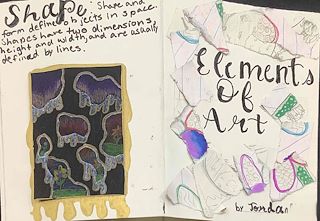 Shape: Shape and
form define objects in space.
Shapes have two dimensions,
height and width, and are usually
defined by lines.
Elements
Of
Art
by Jordan